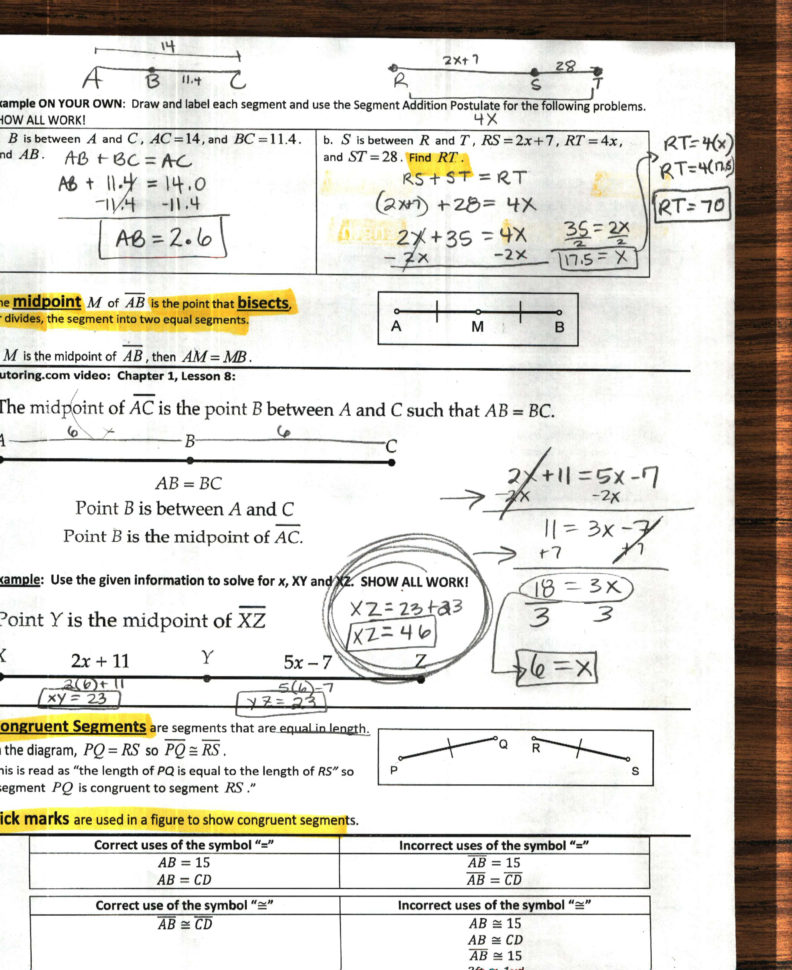 14
A B 11.4 C
2x+7 28
R S T
4X
xample ON YOUR OWN: Draw and label each segment and use the Segment Addition Postulate for the following problems.
HOW ALL WORK!
B is between A and C, AC=14, and BC=11.4.
nd AB.
AB + BC = AC
AB + 11.4 = 14.0
-11.4 -11.4
AB = 2.6
b. S is between R and T, RS=2x+7, RT=4x,
and ST=28. Find RT.
RS + ST = RT
(2x+7) + 28 = 4X
2x+35 = 4X
-2x -2x
35 = 2X
2 2
17.5 = X
RT=4(x)
RT=4(17.5)
RT= 70
he midpoint M of AB is the point that bisects,
r divides, the segment into two equal segments.
A M B
M is the midpoint of AB, then AM = MB.
utoring.com video: Chapter 1, Lesson 8:
The midpoint of AC is the point B between A and C such that AB = BC.
6 6
A B C
AB = BC
Point B is between A and C
Point B is the midpoint of AC.
2x+11 = 5x-7
-2x -2x
11 = 3x-7
+7 +7
18 = 3x
3 3
6 = x
xample: Use the given information to solve for x, XY and XZ. SHOW ALL WORK!
Point Y is the midpoint of XZ
XZ = 23+23
XZ = 46
X 2x + 11 Y 5x – 7 Z
2(6)+11 5(6)-7
XY = 23 YZ = 23
ongruent Segments are segments that are equal in length.
n the diagram, PQ = RS so PQ ≅ RS.
his is read as “the length of PQ is equal to the length of RS” so
segment PQ is congruent to segment RS.”
P Q R S
ick marks are used in a figure to show congruent segments.
Correct uses of the symbol “=” Incorrect uses of the symbol “=”
AB = 15 AB = 15
AB = CD AB = CD
Correct use of the symbol “≅” Incorrect uses of the symbol “≅”
AB ≅ CD AB ≅ 15
AB ≅ CD
AB ≅ 15